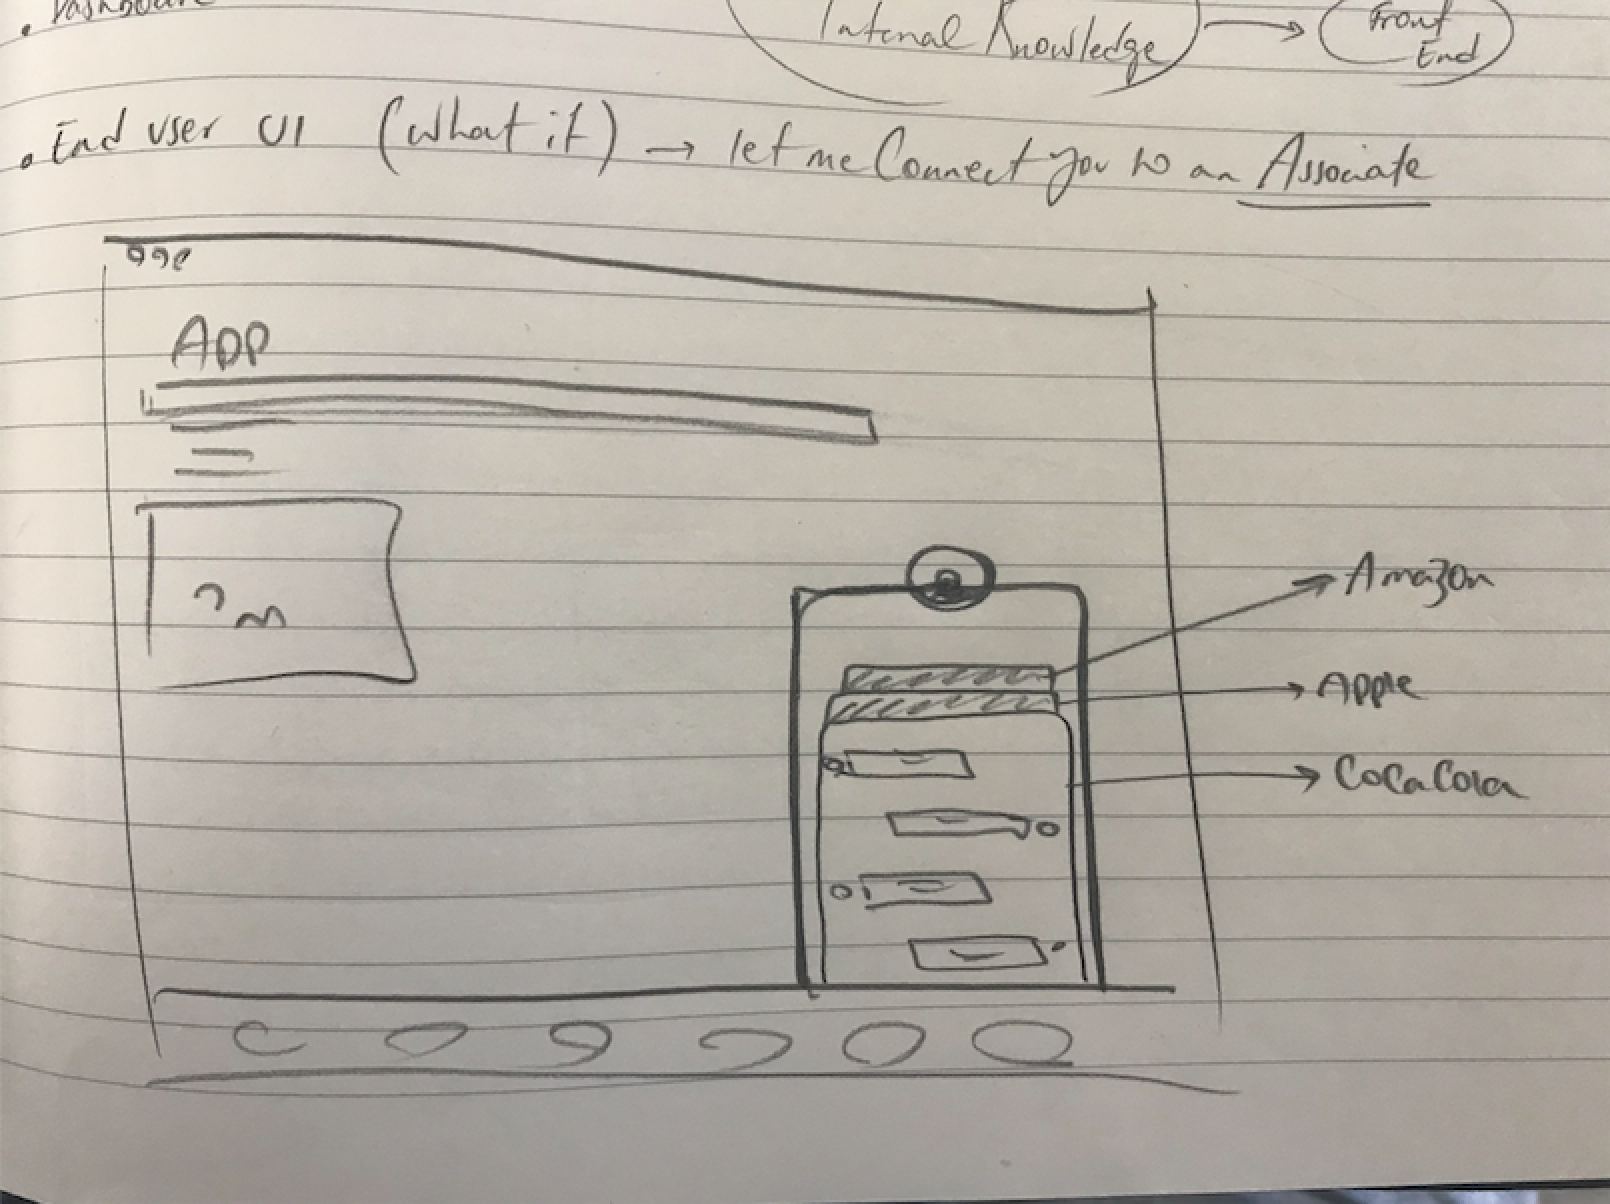 . Dashboard
Internal Knowledge → Front End
. End user UI (what if) → let me Connect you to an Associate
APP
Amazon
Apple
CocaCola